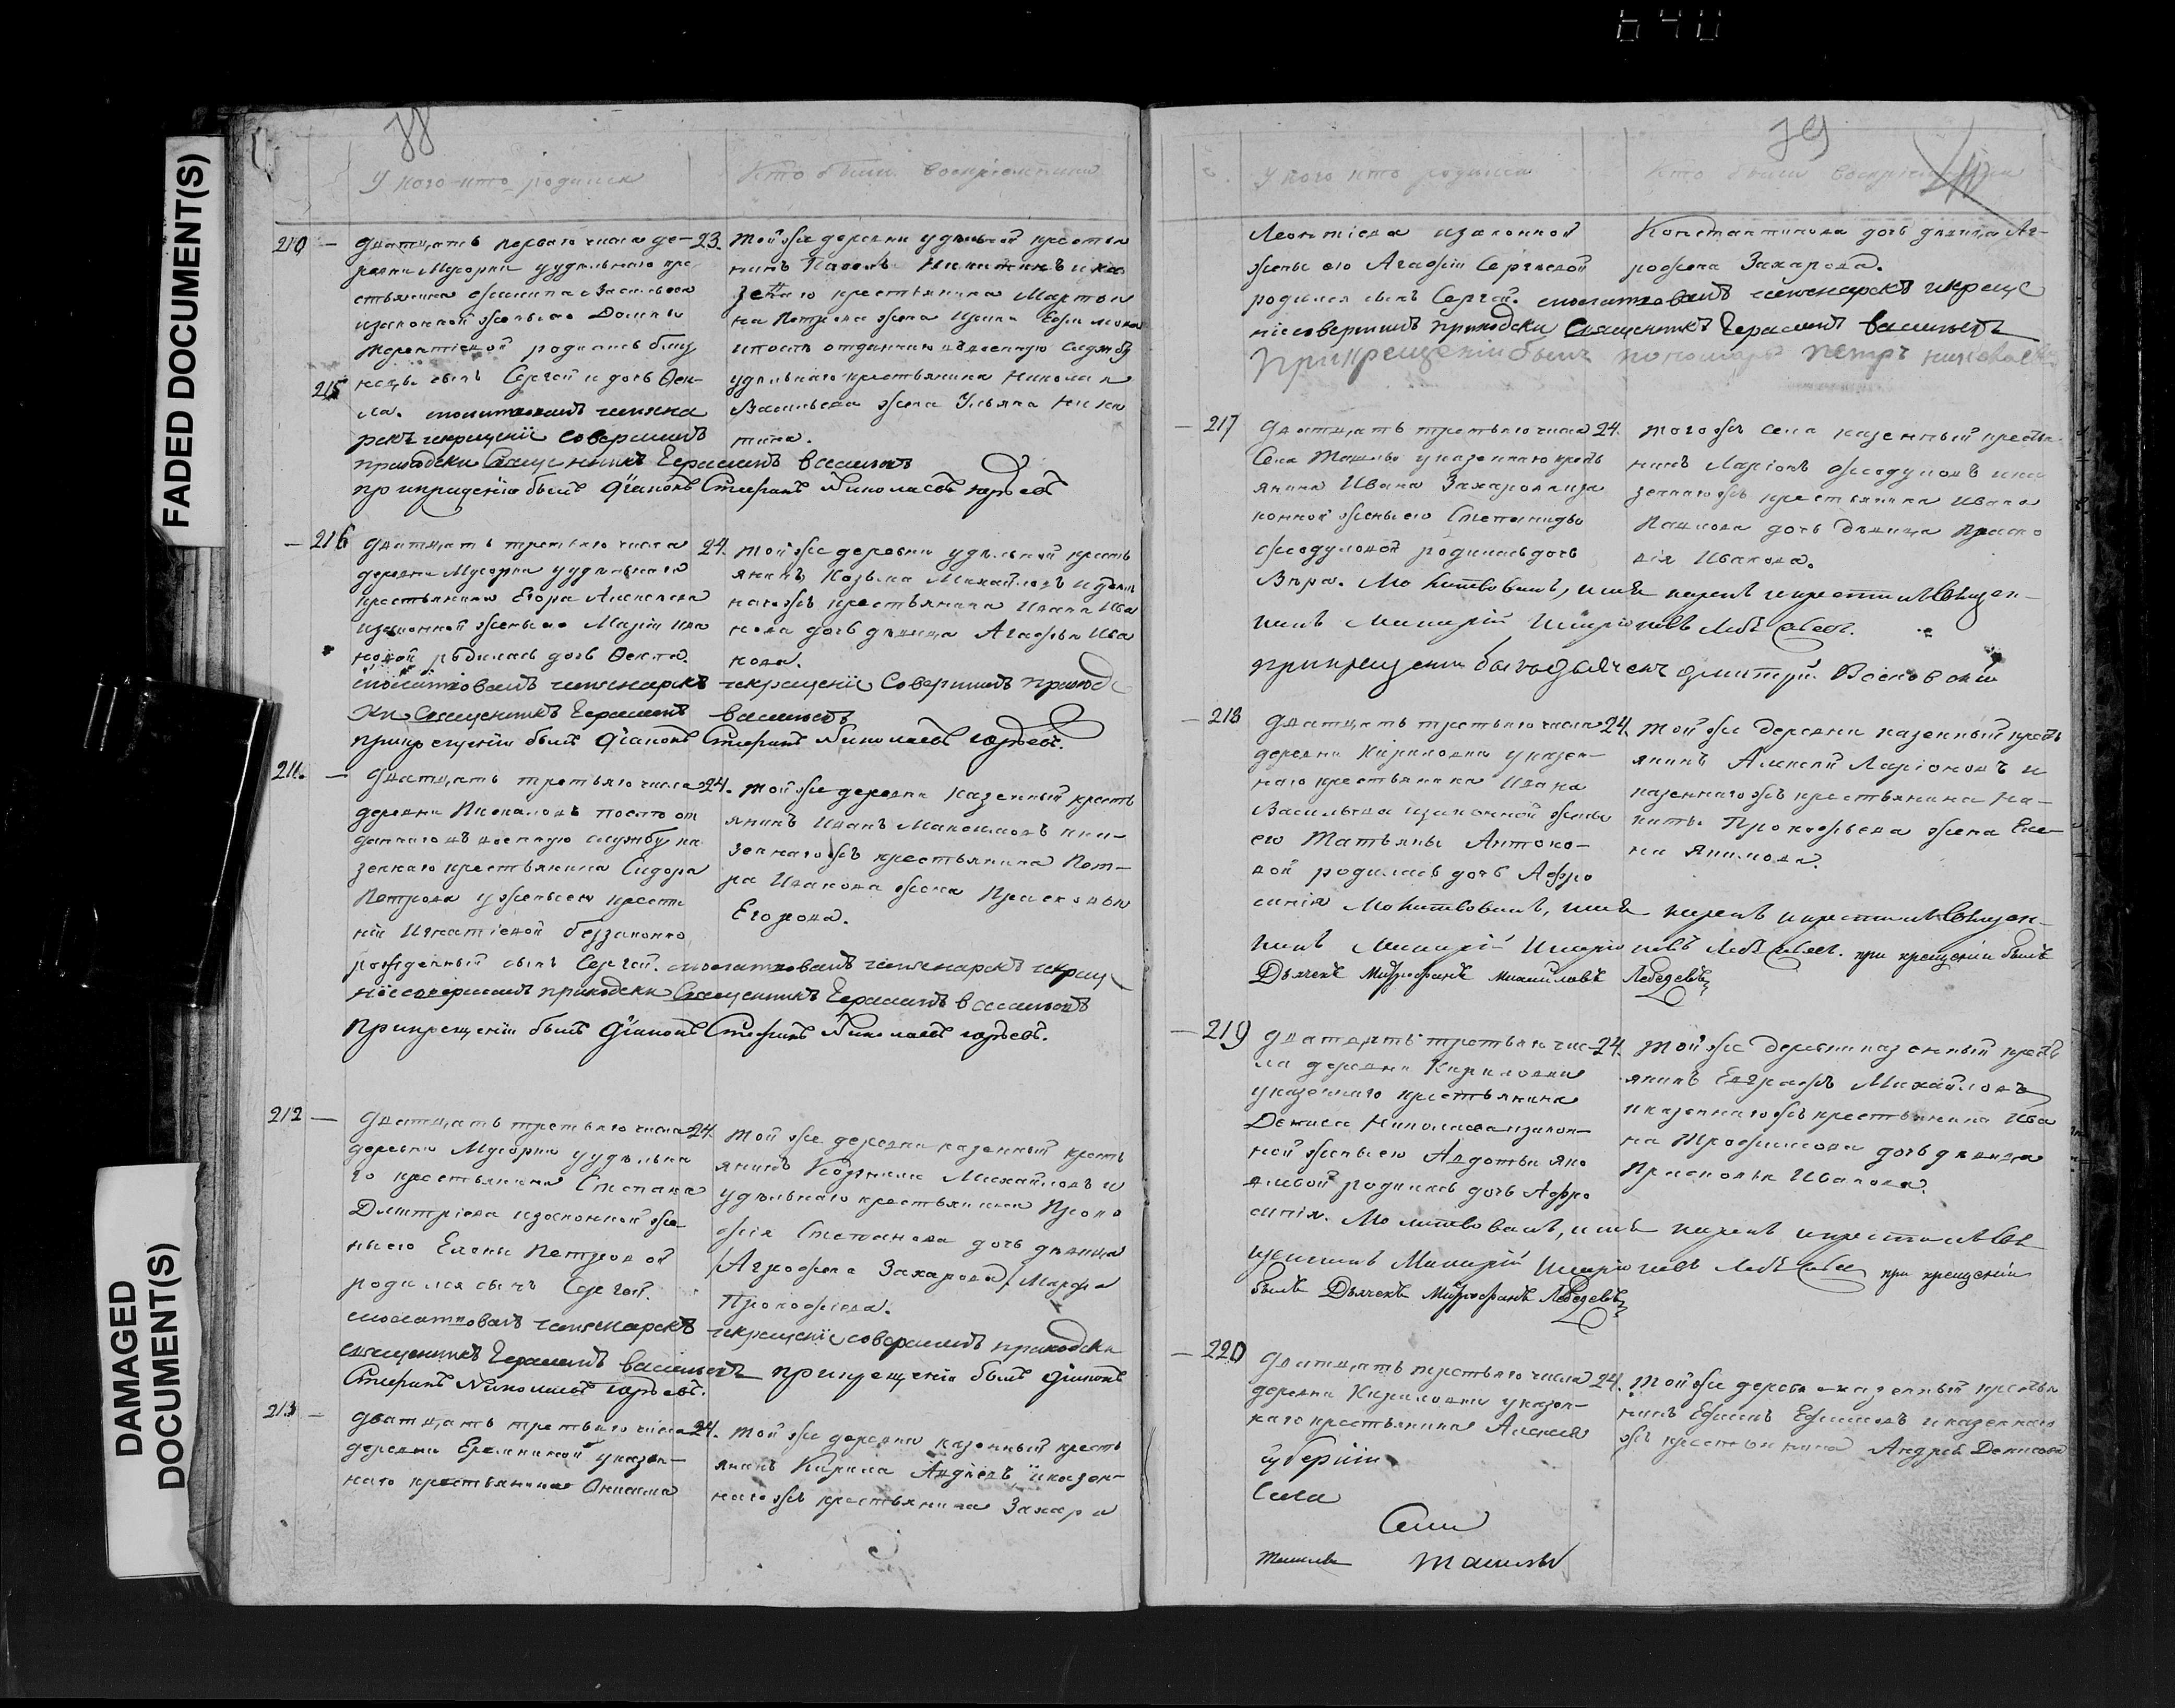 640
FADED DOCUMENT(S)
DAMAGED
DOCUMENT(S)
78
У кого кто родился
Кто были восприемники
210 — Дватцать перваго числа де-
ревни Мусорки у удельнаго кре
стьянина Филипа Васильева
и законной жены ево Домны
Терентiевой родились близ
215 нецы сынъ Сергей и дочь Фек-
ла. молитвовалъ имя нa
рекъ и крещенiе совершилъ
приходски Священникъ Герасимъ Васильевъ
при крещенiи былъ Дiаконъ Стефанъ Николаевъ Юрьевъ
23. той же деревни удельной крестья
нинъ Павелъ Никитинъ и ка
зеннаго крестьянина Марты
на Петрова жена Ирина Ефимова
и постъ отданнаго въ военную службу
удельнаго крестьянина Николая
Васильева жена Ульяна Ники
тина.
— 216 Дватцать третьяго числа
деревни Мусорки у удельнаго
крестьянина Егора Алексеева
и законной жены ево Марiи Ива
новой родилась дочь Фекла.
молитвовалъ имя нарекъ и крещенiе Совершилъ приход
ски Священникъ Герасимъ Васильевъ
при крещенiи былъ Дiаконъ Стефанъ Николаевъ Юрьевъ.
24. той же деревни удельной кресть
янинъ Козьма Михайловъ и удель
наго жъ крестьянина Ивана Ива
нова дочь девица Агафья Ива
нова.
211. — Дватцать третьяго числа
деревни после от
даннаго въ военную службу ка
зеннаго крестьянина Сидора
Петрова у жены ево
Игнатiевой беззаконно
рожденный сынъ Сергей. молитвовалъ имя нарекъ и креще
нiе совершилъ приходски Священникъ Герасимъ Васильевъ
При крещенiи былъ Дiаконъ Стефанъ Николаевъ Юрьевъ.
24. той же деревни казенный кресть
янинъ Иванъ Максимовъ и ка-
зеннаго жъ крестьянина Пет-
ра Иванова жена Прасковья
Егорова.
212 — Дватцать третьяго числа
деревни Мусорки у удельна
го крестьянина Степана
Дмитрiева и законной же
ны ево Елены Петровой
родился сынъ Сергей.
молитвовалъ имя нарекъ и крещенiе совершилъ приходски
священникъ Герасимъ Васильевъ при крещенiи былъ Дiаконъ
Стефанъ Николаевъ Юрьевъ.
24. той же деревни казенный кресть
янинъ Козьма Михайловъ и
удельнаго крестьянина Проко
фiя Степанова дочь девица
/Агрофена Захарова/ Марфа
Прокофiева.
213 — Дватцать третьяго числа
деревни Еремкиной у казен-
наго крестьянина Онисима
24. той же деревни казенный кресть
янинъ Кирила Авдеевъ и казен-
наго жъ крестьянина Захара
79
У кого кто родился
Кто были
Леонтiева и законной
жены ево Агафiи Сергеевой
родился сынъ Сергей. молитвовалъ имя нарекъ и креще
нiе совершилъ приходски Священникъ Герасимъ Васильевъ
При крещенiи былъ пономарь Петръ
Константинова дочь девица Аг-
рофена Захарова.
— 217 Дватцать третьяго числа
Села Ташлы у казеннаго кресть
янина Ивана Захарова и за
конной жены ево Степаниды
Феодуловой родилась дочь
Вера. Молитвовалъ, имя нарекъ и крестилъ Священ-
никъ Макарiй Иларiоновъ Лебедевъ.
при крещенiи былъ дьячекъ Дмитрiй
24. того жъ села казенный крестья
нинъ Ларiонъ Феодуловъ и ка
зеннаго жъ крестьянина Ивана
Павлова дочь девица Праско
вiя Иванова.
— 218 Дватцать третьяго числа
деревни Кириловки у казен-
наго крестьянина Ивана
Васильева и законной жены
ево Татьяны Антоно-
вой родилась дочь Афро
синiя. Молитвовалъ, имя нарекъ и крестилъ Священ-
никъ Макарiй Иларiоновъ Лебедевъ. при крещенiи былъ
Дьячекъ Митрофанъ Михайловъ Лебедевъ
24. той же деревни казенный кресть
янинъ Алексей Ларiоновъ и
казеннаго жъ крестьянина Ни-
киты Прокофьева жена Еле-
на Якимова.
— 219 Дватцать третьяго чис-
ла деревни Кириловки
у казеннаго крестьянина
Дениса Николаева и закон-
ной жены ево Авдотьи Яко
влевой родилась дочь Афро
синiя. Молитвовалъ, имя нарекъ и крестилъ Свя
щенникъ Макарiй Иларiоновъ Лебедевъ при крещенiи
былъ Дьячекъ Митрофанъ Лебедевъ
24. той же деревни казенный кресть
янинъ Евграфъ Михайловъ
и казеннаго жъ крестьянина Ива
на Трофимова дочь девица
Прасковья Иванова.
— 220 Дватцать третьяго числа
деревни Кириловки у казен-
наго крестьянина Алексея
губернiи
Села
Села
Ташлы Ташлы
24. той же деревни казенный крестья
нинъ Ефимъ Ефимовъ и казеннаго
жъ крестьянина Андрея Денисова